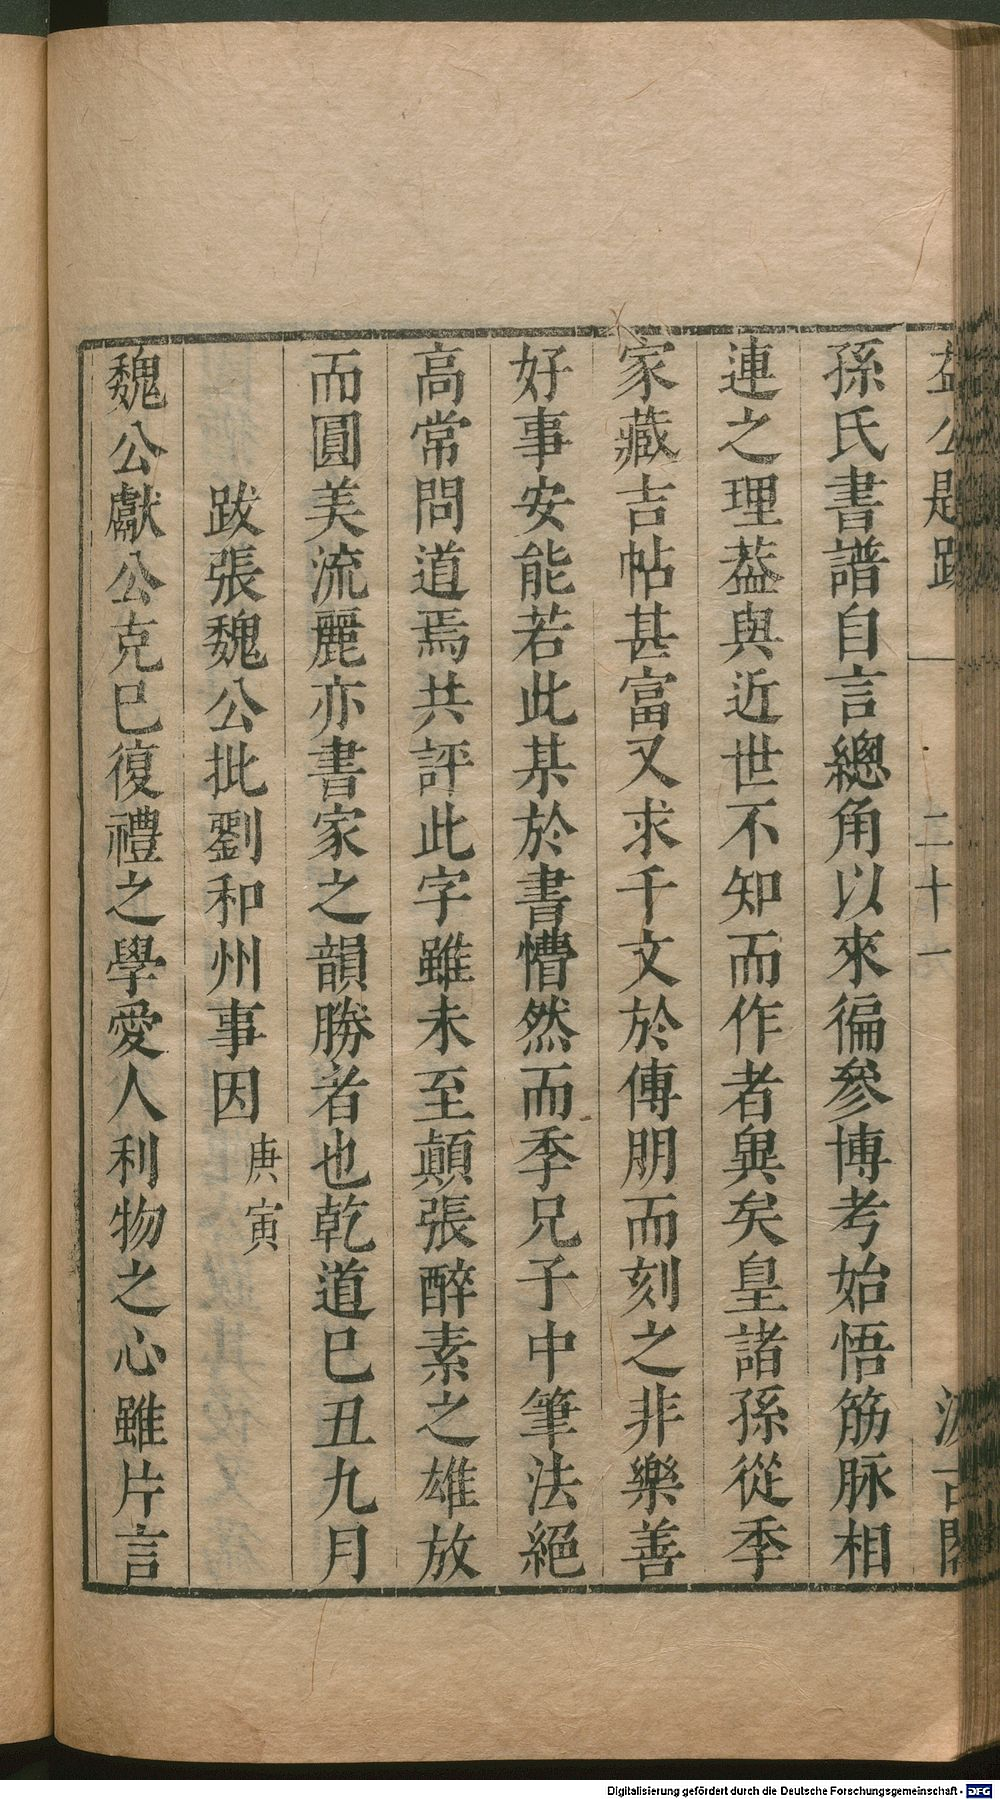 益公題跋 二十一 汲古閣
孫氏書譜自言總角以來徧參博考始悟筋脉相
連之理葢與近世不知而作者異矣皇諸孫從季
家藏吉帖甚富又求千文於傳朋而刻之非樂善
好事安能若此某於書懵然而季兄子中筆法絕
高常問道焉共評此字雖未至顛張醉素之雄放
而圓美流麗亦書家之韻勝者也乾道巳丑九月
跋張魏公批劉和州事因 庚寅
魏公獻公克巳復禮之學愛人利物之心雖片言
Digitalisierung gefördert durch die Deutsche Forschungsgemeinschaft - DFG